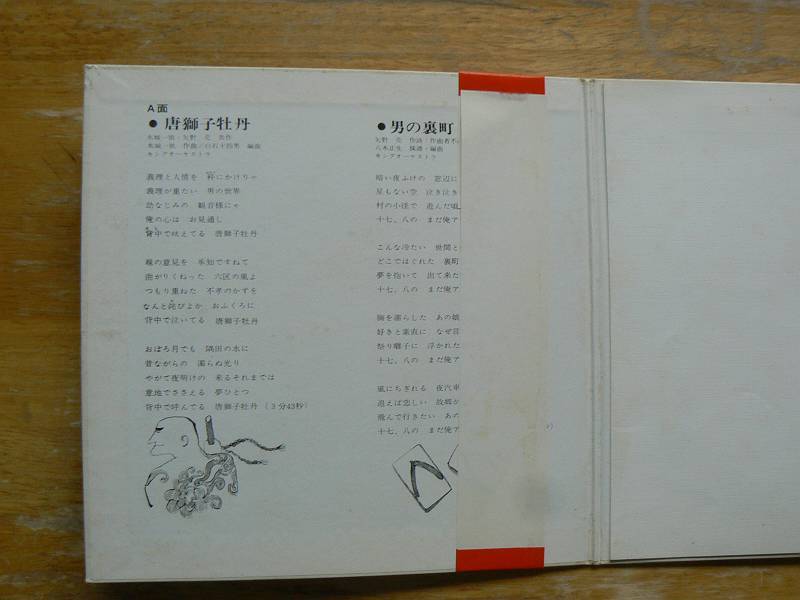 A面
●唐獅子牡丹
水城一狼・矢野 亮 共作
水城一狼 作曲／白石十四男 編曲
キングオーケストラ
義理と人情を 秤にかけりゃ
義理が重たい 男の世界
幼なじみの 観音様にゃ
俺の心は お見通し
背中で吠えてる 唐獅子牡丹
親の意見を 承知ですねて
曲がりくねった 六区の風よ
つもり重ねた 不孝のかずを
なんと詫びよか おふくろに
背中で泣いてる 唐獅子牡丹
おぼろ月でも 隅田の水に
昔ながらの 濁らぬ光り
やがて夜明けの 来るそれまでは
意地でささえる 夢ひとつ
背中で呼んでる 唐獅子牡丹（3分43秒）
●男の裏町
矢野 亮 作詩／作曲者不
八木正生 採譜・編曲
キングオーケストラ
暗い夜ふけの 窓辺に
星もない空 泣き泣き
村の小径で 遊んだ頃
十七、八の まだ俺ア
こんな冷たい 世間と
どこではぐれた 裏町
夢を抱いて 出て来た
十七、八の まだ俺ア
胸を濡らした あの娘
好きと素直に なぜ言
祭り囃子に 浮かれた
十七、八の まだ俺ア
風にちぎれる 夜汽車
追えば恋しい 故郷が
飛んで行きたい あの
十七、八の まだ俺ア